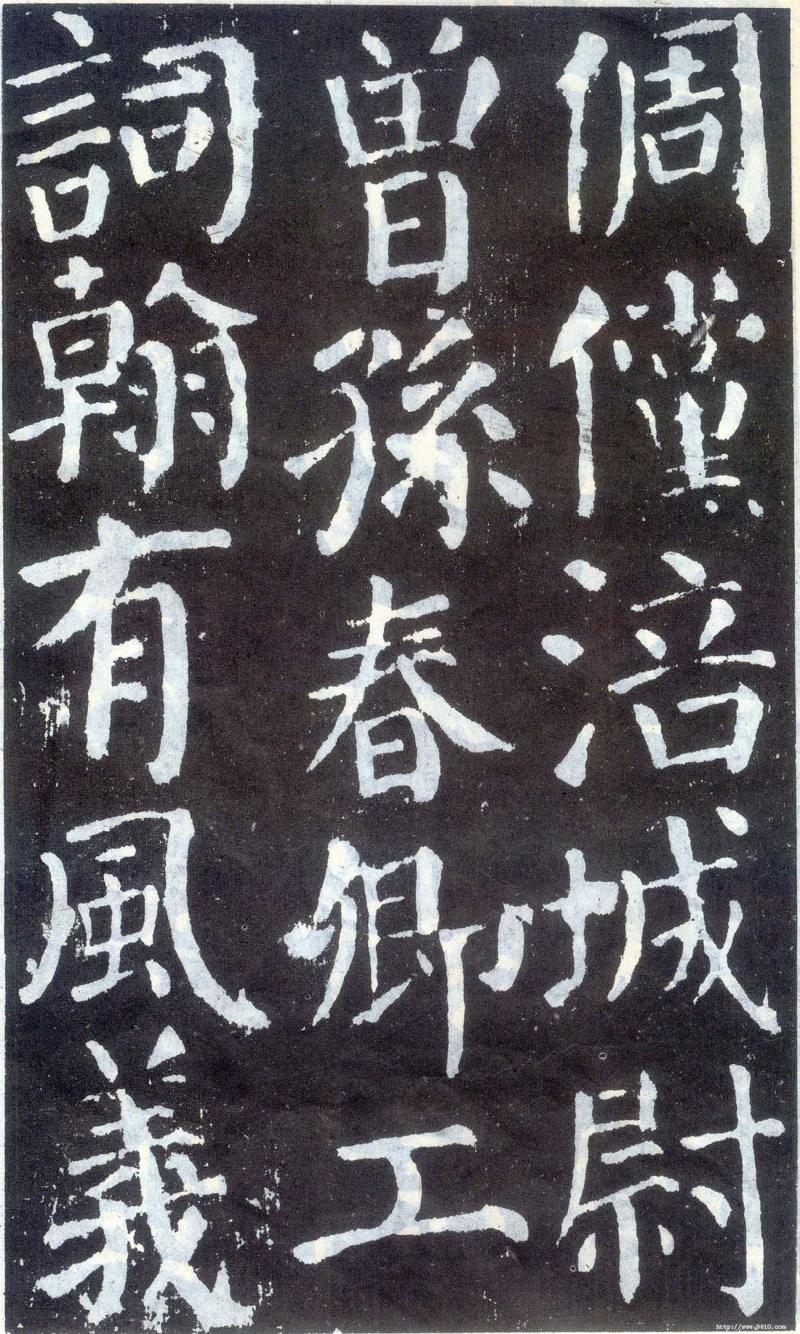 倜儻涪城尉
曾孫春卿工
詞翰有風義
http://www.9610.com